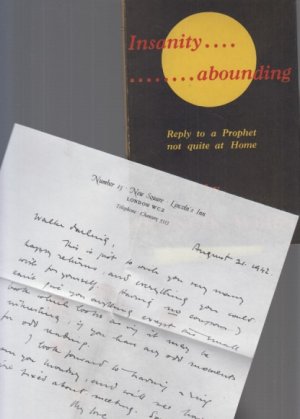 Insanity....
........abounding
Reply to a Prophet
not quite at Home
Number 15 New Square Lincoln's Inn
LONDON WC2
Telephone: Chancery
August 21. 1942
Walter darling,
This is just to wish you many
happy returns, and everything you could
wish for yourself. Having no coupons I
can't give you anything except this small
book which looks as if it may be
interesting if you have any odd moments
for odd reading.
I look forward to having a ring
from you Monday, and will
fixed about meeting.
My love